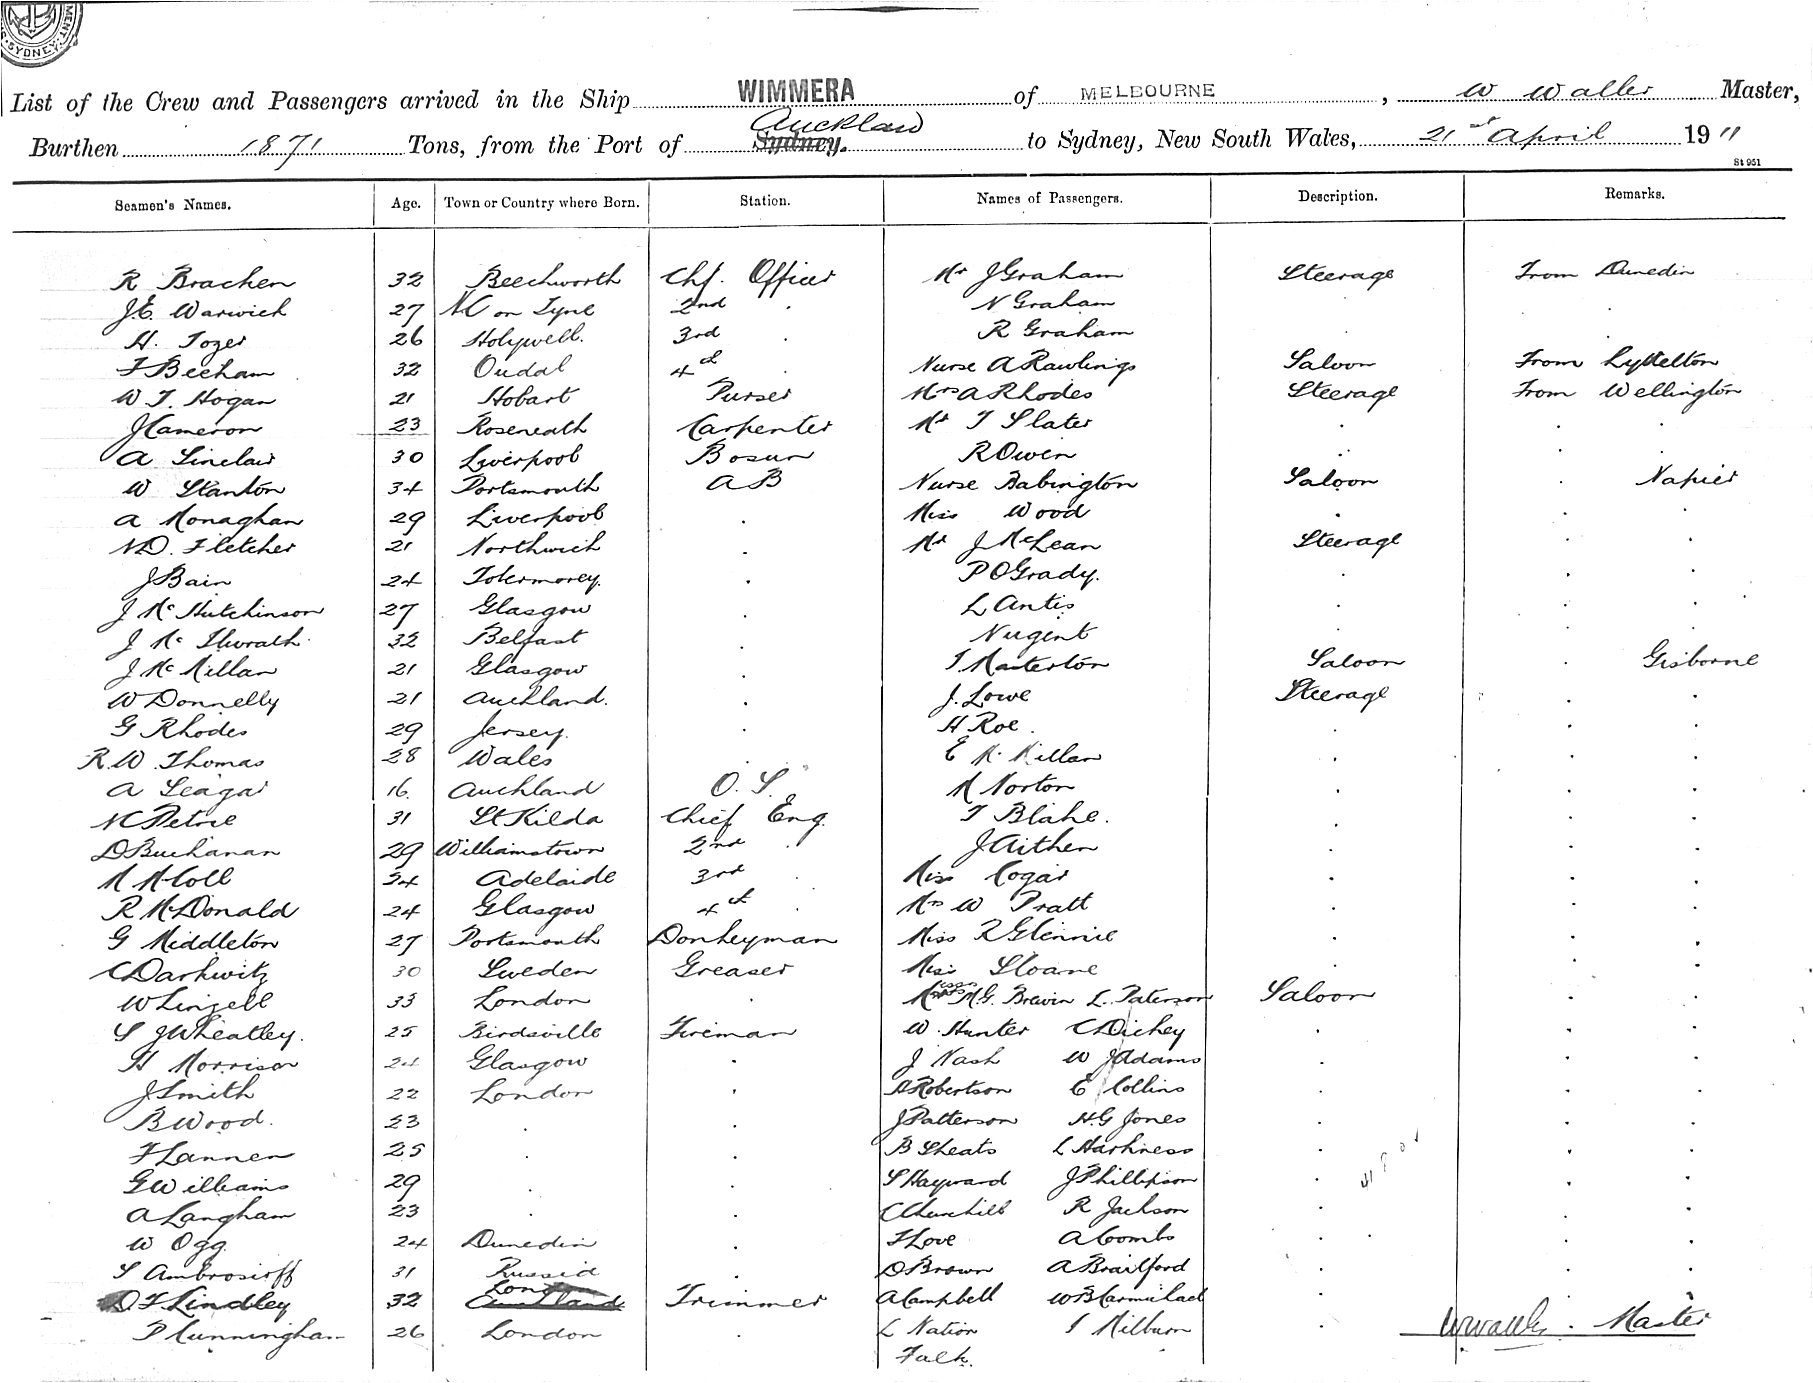 SYDNEY
List of the Crew and Passengers arrived in the Ship WIMMERA of MELBOURNE, W Waller Master,
Burthen 1871 Tons, from the Port of Sydney. Auckland to Sydney, New South Wales, 21st April 1911
St 951
Seamen's Names. Age. Town or Country where Born. Station. Names of Passengers. Description. Remarks.
R Bracken 32 Beechworth Chf. Officer Mr J Graham Steerage From Dunedin
J.E. Warwick 27 NC on Tyne 2nd . N Graham . .
H. Tozer 26 Holywell. 3rd . R Graham . .
F Beeham 32 4th . Nurse A Rawlings Saloon From Lyttelton
W T. Hogan 21 Hobart Purser Mrs A Rhodes Steerage From Wellington
J Cameron 23 Roseneath Carpenter Mr T Slater . . .
A Sinclair 30 Liverpool Bosun R Owen . . .
W Stanton 34 Portsmouth A B Nurse Babington Saloon . Napier
A Monaghan 29 Liverpool . Miss Wood . . .
N.D. Fletcher 21 Northwich . Mr J McLean Steerage . .
J Bain 24 Tobermorey. . P O Grady. . . .
J McHutchinson 27 Glasgow . L Antis . . .
J McIlwrath 32 Belfast . Nugent . . .
J McMillan 21 Glasgow . T Masterton Saloon . Gisborne
W Donnelly 21 Auckland. . J. Lowe Steerage . .
G Rhodes 29 Jersey. . H Roe . . . .
R.W. Thomas 28 Wales E McMillan . . .
A Seagar 16 Auckland O. S. M Norton . . .
N C Petrie 31 St Kilda Chief Eng. T Blake. . . .
D Buchanan 29 Williamstown 2nd . J Aitken . . .
M McColl 24 Adelaide 3rd . Miss Cogar . . .
R McDonald 24 Glasgow 4th . Mrs W Pratt . . .
G Middleton 27 Portsmouth Donkeyman Miss R Glennie . . .
C Darkwitz 30 Sweden Greaser Miss Sloane . . .
W Linzell 33 London . M.G. Brewin L. Paterson Saloon . .
S J Wheatley. 25 Birdsville Fireman W. Hunter C Dickey . . .
H Morrison 24 Glasgow . J Nash W J Adams . . .
J Smith 22 London . D Robertson E Collins . . .
B Wood. 23 . . J Patterson H.G Jones . . .
F Lannen 25 . . B Sheats L Harkness . . .
G Williams 29 . . S Hayward J Phillipson . . .
A Langham 23 . . C Churchill R Jackson . . .
W Ogg 24 Dunedin . F Love A Coombs . . .
S Ambrosioff 31 Russia . D Brown A Brailford . . .
D F Lindley 32 London Trimmer A Campbell W B Carmichael . .
P Cunningham 26 London . L Nation T Milburn . W Waller. Master
Falk.